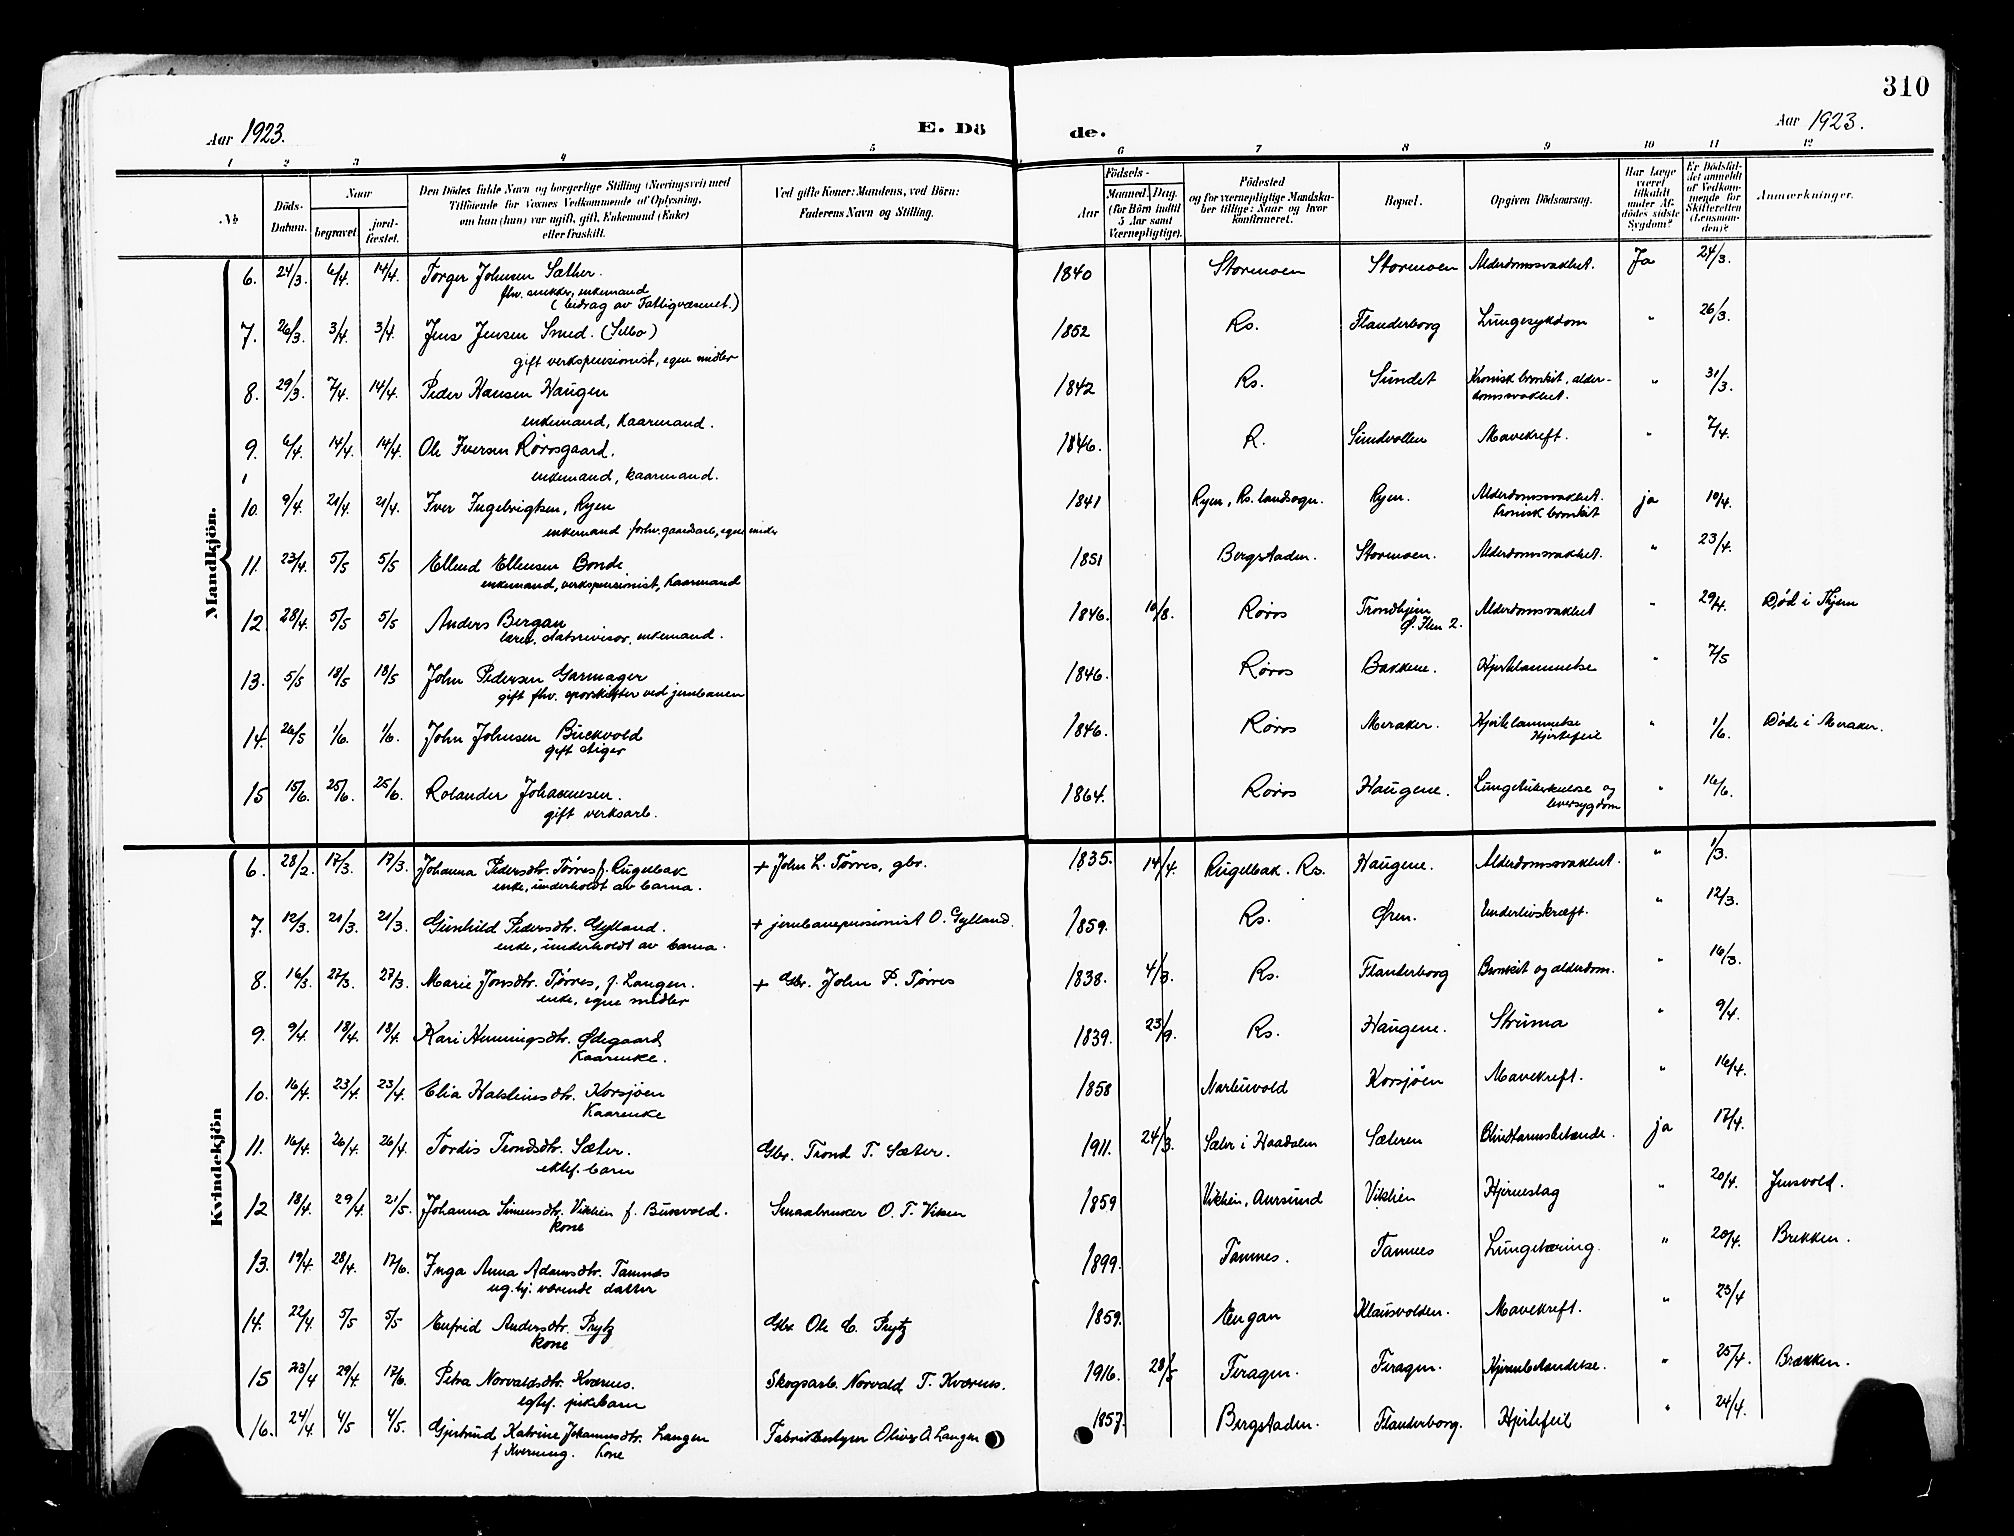 310
Aar 1923.
E. Dö
de.
Aar 1923.
1 2 3 4 5 6 7 8 9 10 11 12
№
Döds-Datum.
Naar
begravet.
jordfæstet.
Den Dödes fulde Navn og borgerlige Stilling (Næringsvei) med
Tilföiende for voxnes Vedkommende af Oplysning,
om han (hun) var ugift, gift, Enkemand (Enke)
eller fraskilt.
Ved gifte Koner: Mandens, ved Börn:
Faderens Navn og Stilling.
Födsels-
Aar
Maaned. Dag.
(for Börn indtil
5 Aar samt
Værnepligtige).
Födested
og for værnepligtige Mandskaber tillige: Naar og hvor
konfirmeret.
Bopæl.
Opgiven Dödsaarsag.
Har Læge
været
tilkaldt
under Afdödes sidste
Sygdom?
Er Dödsfaldet anmeldt
af Vedkommende for
Skifteretten
(Lensmanden)?
Anmærkninger.
Mandkjön.
6. 24/3. 6/4. 14/4. Torger Johnsen Sæther. 1840 Stormoen Stormoen Alderdomsvakhet. Ja 24/3.
fhv. snekker, enkemand
(bidrag av Fattigvæsenet.)
7. 26/3. 3/4. 3/4. Jens Jensen Smed. (Selbo) 1852 Rs. Flanderborg Lungesykdom " 26/3.
gift verkspensionist, egne midler
8. 29/3. 7/4. 14/4. Peder Hansen Haugen 1842 Rs. Sundet Kronisk bronkit, alder-
domsvakhet. " 31/3.
enkemand, Kaarmand.
9. 6/4. 14/4. 14/4. Ole Iversen Rørosgaard. 1846. R. Sundvollen Mavekreft. " 7/4.
enkemand, kaarmand.
10. 9/4. 21/4. 21/4. Iver Ingebrigtsen, Ryen 1841 Ryen, Rs. landsogn. Ryen. Alderdomsvakhet.
Kronisk bronkit ja 10/4.
enkemand forhv. gaardarb., egne midler
11. 23/4. 5/5 5/5 Ellend Ellensen Bonde 1851 Bergstaden. Stormoen. Alderdomsvakhet. " 23/4.
enkemand, verkspensionist, Kaarmand
12. 28/4. 5/5 5/5 Anders Bergan 1846. 10/8. Røros Trondhjem
Ø. Ilen 2. Alderdomsvakhet " 29/4. Død i Thjem
lærer, statsrevisor, enkemand.
13. 5/5 18/5 18/5 John Pedersen Garmager 1846. Røros Bakkene. Hjertelammelse " 7/5
gift fhv. sporskifter ved jernbanen
14. 26/5 1/6. 1/6. John Johnsen Buckvold 1846. Røros Meraker. Hjertelammelse
Hjertefeil " 1/6. Døde i Meraker.
gift stiger
15 15/6. 25/6. 25/6. Rolander Johannesen. 1864. Røros Haugene. Lungetuberkulose og
leversygdom " 16/6.
gift verksarb.
Kvindekjön
6. 28/2. 17/3. 17/3. Johanna Pedersdtr. Tørres f. Rugelbak + John L. Tørres, gbr. 1835. 14/4. Rugelbak. Rs. Haugene. Alderdomsvakhet. " 1/3.
enke, underholdt av barna.
7. 12/3. 21/3. 21/3. Gunhild Pedersdtr. Gylland. + jernbanepensionist O. Gylland. 1859. Rs. Øren. Underlivskræft. " 12/3.
enke, underholdt av barna.
8. 16/3. 27/3. 27/3. Marie Jonsdtr. Tørres, f. Langen. + Gbr. John P. Tørres 1838. 4/3. Rs. Flanderborg Bronkit og alderdom. " 16/3.
enke, egne midler
9. 9/4. 18/4. 18/4. Kari Henningsdtr. Ødegaard 1839. 23/9. Rs. Haugene. Struma " 9/4.
Kaarenke.
10. 16/4. 23/4. 23/4. Elia Halsteinsdtr. Korsjøen 1858 Narbuvold Korsjöen Mavekreft. " 16/4.
Kaarenke
11. 16/4. 26/4. 26/4. Tordis Trondsdtr. Sæter. Gbr. Trond T. Sæter. 1911. 24/3. Sæter i Haadalen Sæteren Blindtarmsbetænde. ja 17/4.
ektef. barn
12 18/4. 29/4. 21/5. Johanna Simensdtr. Vikhin f. Buasvold. Smaabruker O. T. Viken 1859 Vikhin, Aursund Vikhin Hjerneslag " 20/4. Jensvold.
kone
13. 19/4. 28/4. 17/6. Inga Anna Adamsdtr. Tamnes 1899. Tamnes. Tamnes Lungetæring. " 20/4. Brekken.
ug. hj. værende datter
14. 22/4. 5/5 5/5 Enfrid Andersdtr. Prytz Gbr. Ole C. Prytz 1859. Engan Klausvolden. Mavekreft. " 23/4
kone
15 23/4 29/4. 17/6. Petra Norvaldsdtr. Kværnes. Skogsarb. Norvald T. Kværnes. 1916. 28/5 Feragen. Feragen. Hjernebetændelse. " 25/4. Brækken.
egtef. pikebarn
16. 24/4 4/5 4/5. Gjertrud Katrine Johannesdtr. Langen Fabrikbestyrer Oliver A Langen 1857. Bergstaden. Flanderborg. Hjertefeil " 24/4.
f. Kverning. Kone